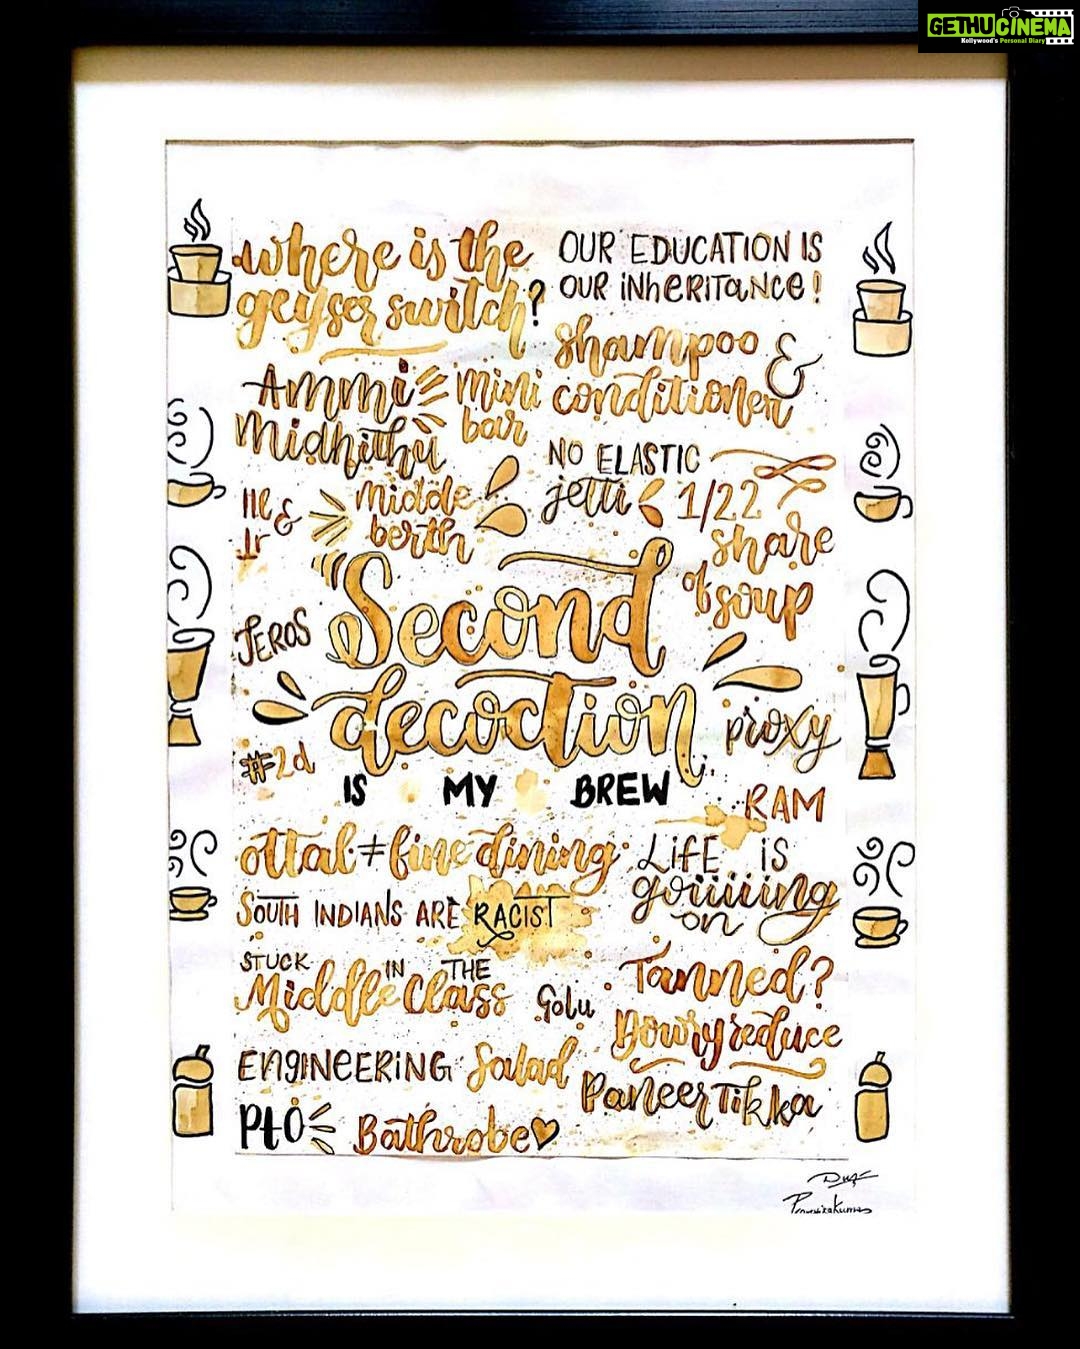 GETHUCINEMA
Kollywood's Personal Diary
where is the
geyser switch?
OUR EDUCATION IS
OUR INHERITANCE!
shampoo &
conditioner
Ammi
Midhithu
mini
bar
NO ELASTIC
jetti
1/22
share
of soup
&
middle
berth
JEROS
"Second
decoction
#2d
IS MY BREW
proxy
RAM
ottal ≠ fine dining
LIFE IS
goiiiiing
on
SOUTH INDIANS ARE RACIST
STUCK IN THE
Middle Class
Golu
Tanned?
Dowry reduce
ENGINEERING
Salad
Paneer Tikka
PtO
Bathrobe